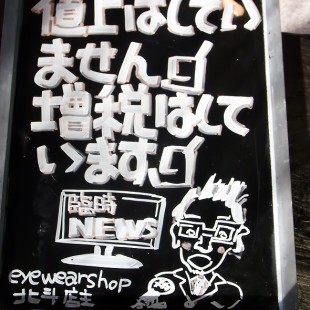 値上はしてい
ません。
増税はして
います。
臨時
NEWS
eyewearshop
北斗屋